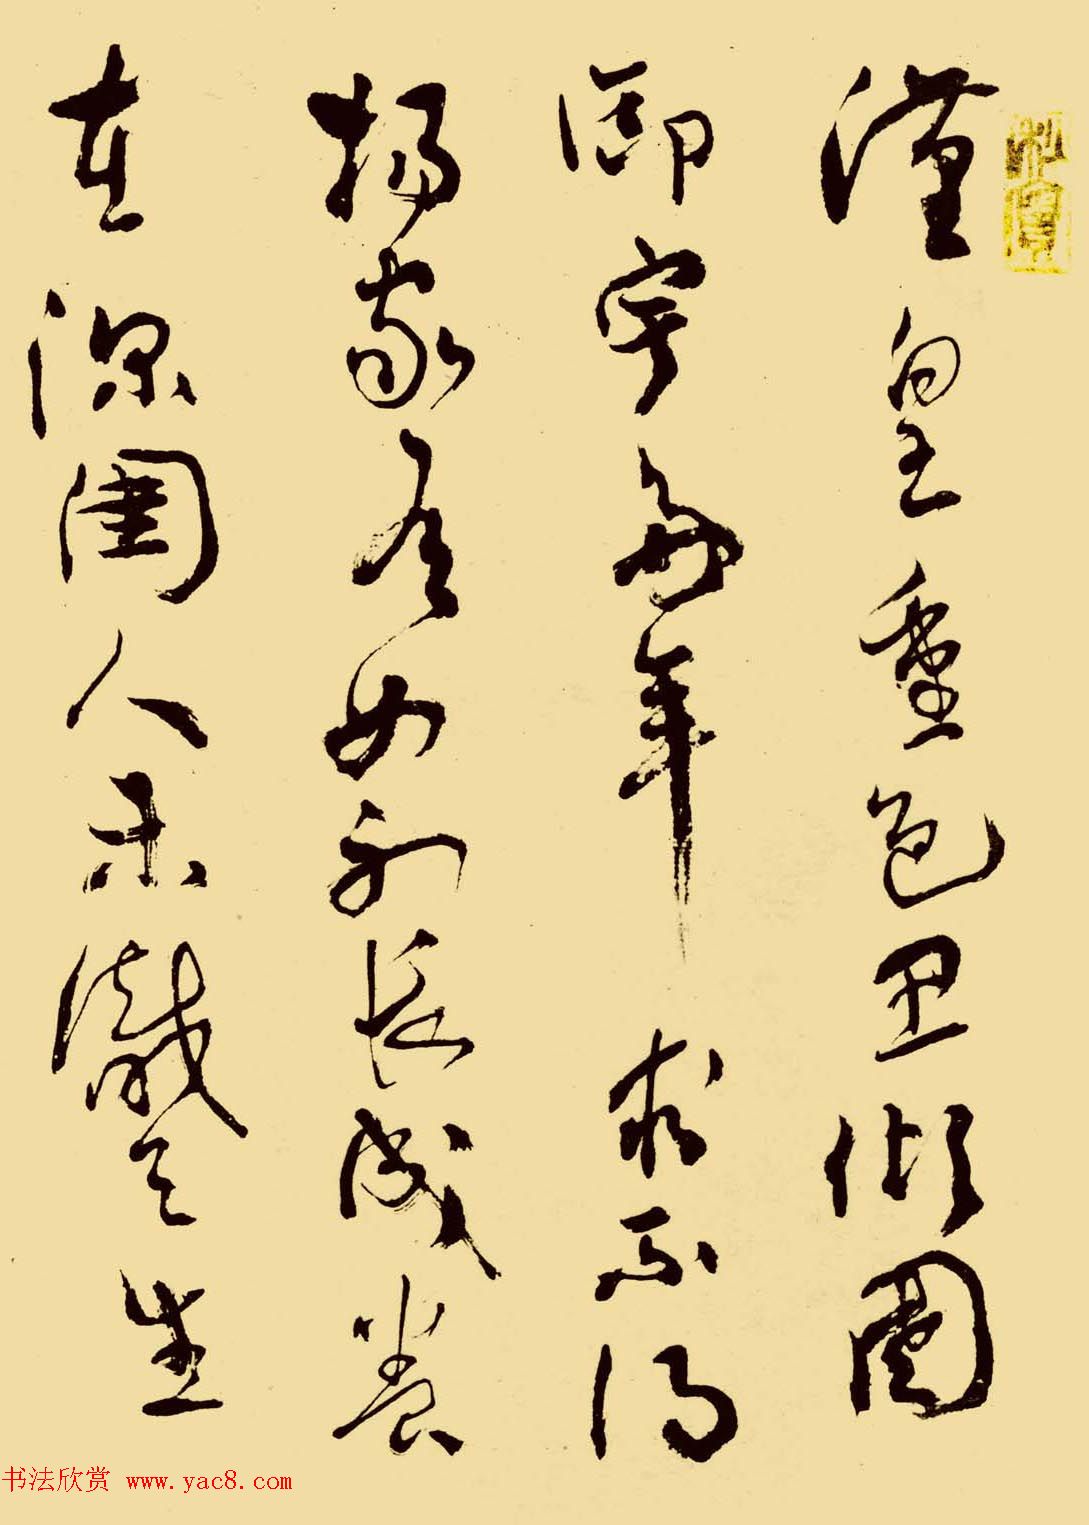 漢皇重色思傾國
御宇多年求不得
楊家有女初長成養
在深閨人未識天生
书法欣赏 www.yac8.com